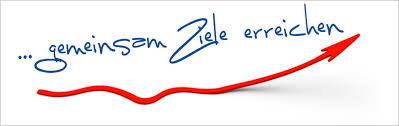 ... gemeinsam Ziele erreichen